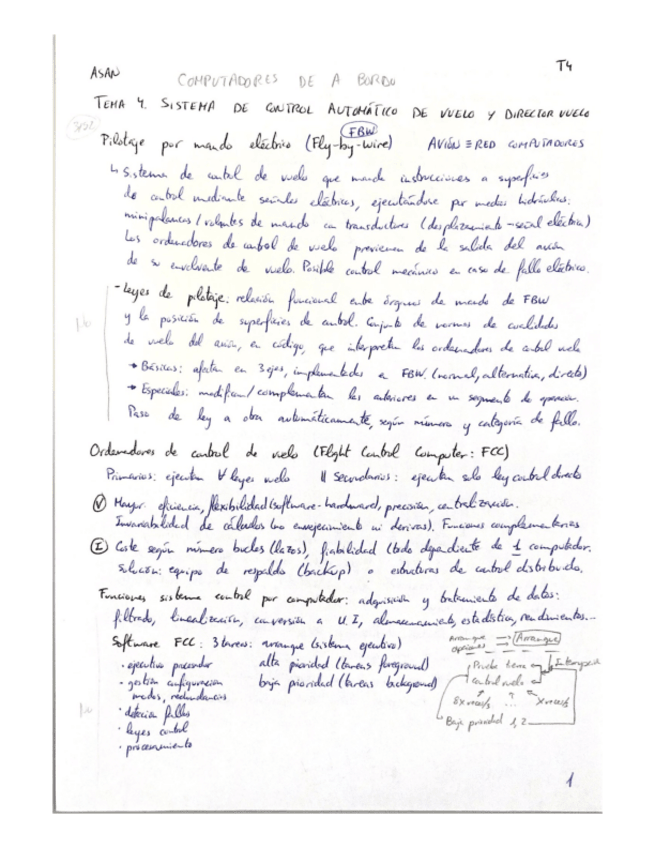 ASAN
T4
COMPUTADORES DE A BORDO
TEMA 4. SISTEMA DE CONTROL AUTOMÁTICO DE VUELO Y DIRECTOR VUELO
FBW
Pilotaje por mando eléctrico (Fly-by-wire) AVIÓN ≡ RED COMPUTADORES
↳ Sistema de control de vuelo que manda instrucciones a superficies
de control mediante señales eléctricas, ejecutándose por medios hidráulicos:
minipalancas / volantes de mando con transductores (desplazamiento - señal eléctrica)
Los ordenadores de control de vuelo previenen de la salida del avión
de su envolvente de vuelo. Posible control mecánico en caso de fallo eléctrico.
- Leyes de pilotaje: relación funcional entre órganos de mando de FBW
y la posición de superficies de control. Conjunto de normas de cualidades
de vuelo del avión, en código, que interpretan los ordenadores de control vuelo
→ Básicas: afectan en 3 ejes, implementadas en FBW. (normal, alternativa, directa)
→ Especiales: modifican / complementan las anteriores en un segmento de operación.
Paso de ley a otra automáticamente, según número y categoría de fallo.
Ordenadores de control de vuelo (Flight Control Computer: FCC)
Primarios: ejecutan ∀ leyes vuelo || Secundarios: ejecutan solo ley control directo
Ⓥ Mayor: eficiencia, flexibilidad (software-hardware), precisión, centralización.
Invariabilidad de cálculos (no envejecimiento ni derivas). Funciones complementarias
Ⓘ Coste según número bucles (lazos), fiabilidad (todo dependiente de 1 computador.
Solución: equipo de respaldo (backup) o estructuras de control distribuido.
Funciones sistema control por computador: adquisición y tratamiento de datos:
filtrado, linealización, conversión a U I, almacenamiento, estadística, rendimientos...
Software FCC: 3 tareas: arranque (sistema ejecutivo)
· ejecutivo procesador alta prioridad (tareas foreground)
· gestión configuración baja prioridad (tareas background)
modos, redundancias
· detección fallos
· leyes control
· procesamiento
Arranque
opciones
Arranque
Control vuelo
Baja prioridad 1, 2
1